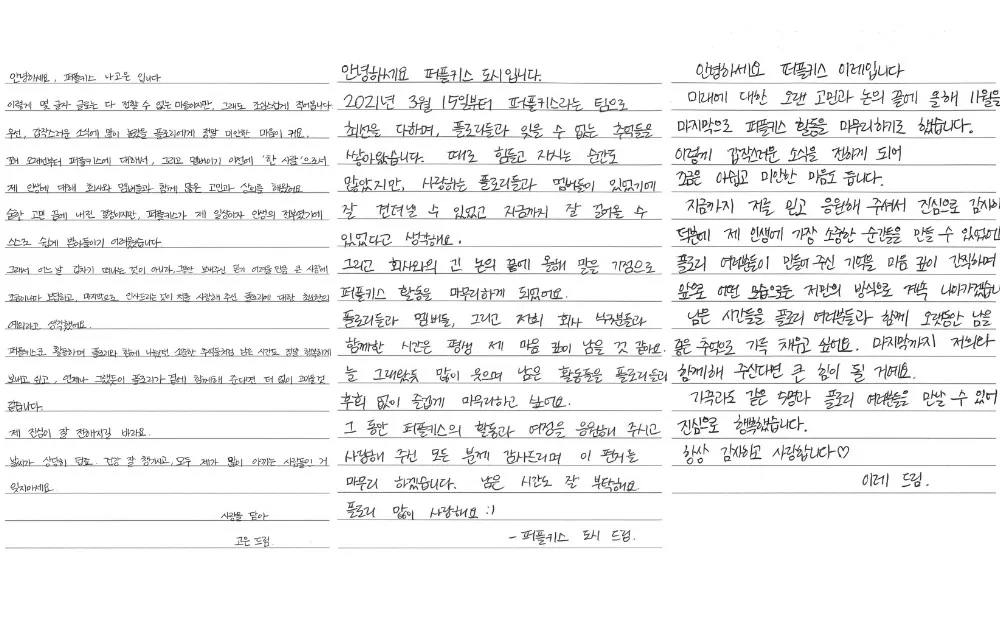 안녕하세요, 퍼플키스 나고은 입니다
이렇게 몇 글자 글로는 다 전할 수 없는 마음이지만, 그래도 조심스럽게 적어봅니다
우선, 갑작스러운 소식에 많이 놀랐을 플로리에게 정말 미안한 마음이 커요.
꽤 오래전부터 퍼플키스에 대해서, 그리고 멤버이기 이전에 '한 사람'으로서
제 인생에 대해 회사와 멤버들과 함께 많은 고민과 상의를 해왔어요
수많은 고민 끝에 내린 결정이지만, 퍼플키스가 제 일상이자 인생의 전부였기에
스스로 쉽게 받아들이기 어려웠습니다
그래서 어느 날 갑자기 떠나는 것이 아니라, 그동안 보내주신 믿기 어려울 만큼 큰 사랑에
조금이나마 보답하고, 마지막으로 인사드리는 것이 저를 사랑해 주신 플로리에 대한 최선의
예의라고 생각했어요.
퍼플키스로 활동하며 플로리와 함께 나눴던 소중한 추억들처럼 남은 시간도 정말 행복하게
보내고 싶고, 언제나 그랬듯이 플로리가 곁에 함께해 준다면 더 없이 고마울 것
같습니다.
제 진심이 잘 전해지길 바라요.
날씨가 상당히 덥죠. 건강 잘 챙기시고, 모두 제가 많이 아끼는 사람들인 거
잊지마세요.
사랑을 담아
고은 드림.
안녕하세요 퍼플키스 도시입니다.
2021년 3월 15일부터 퍼플키스라는 팀으로
최선을 다하며, 플로리들과 잊을 수 없는 추억들을
쌓아왔습니다. 때로 힘들고 지치는 순간도
많았지만, 사랑하는 플로리들과 멤버들이 있었기에
잘 견뎌낼 수 있었고 지금까지 잘 걸어올 수
있었다고 생각해요.
그리고 회사와의 긴 논의 끝에 올해 말을 기점으로
퍼플키스 활동을 마무리하게 되었어요.
플로리들과 멤버들, 그리고 저희 회사 식구분들과
함께한 시간은 평생 제 마음 깊이 남을 것 같아요.
늘 그래왔듯 많이 웃으며 남은 활동들을 플로리들과
후회 없이 즐겁게 마무리하고 싶어요.
그 동안 퍼플키스의 활동과 여정을 응원해 주시고
사랑해 주신 모든 분께 감사드리며 이 편지를
마무리 하겠습니다. 남은 시간도 잘 부탁해요
플로리 많이 사랑해요 :)
- 퍼플키스 도시 드림.
안녕하세요 퍼플키스 이레입니다
미래에 대한 오랜 고민과 논의 끝에 올해 11월을
마지막으로 퍼플키스 활동을 마무리하기로 했습니다.
이렇게 갑작스러운 소식을 전하게 되어
조금은 아쉽고 미안한 마음도 듭니다.
지금까지 저를 믿고 응원해 주셔서 진심으로 감사하
덕분에 제 인생에 가장 소중한 순간들을 만들 수 있었어
플로리 여러분들이 만들어 주신 기억을 마음 깊이 간직하며
앞으로 어떤 모습으로든 저만의 방식으로 계속 나아가겠습니
남은 시간들을 플로리 여러분들과 함께 오랫동안 남을
좋은 추억으로 가득 채우고 싶어요. 마지막까지 저희와
함께해 주신다면 큰 힘이 될 거예요.
가족과도 같은 5명과 플로리 여러분들을 만날 수 있어
진심으로 행복했습니다.
항상 감사하고 사랑합니다♡
이레 드림.